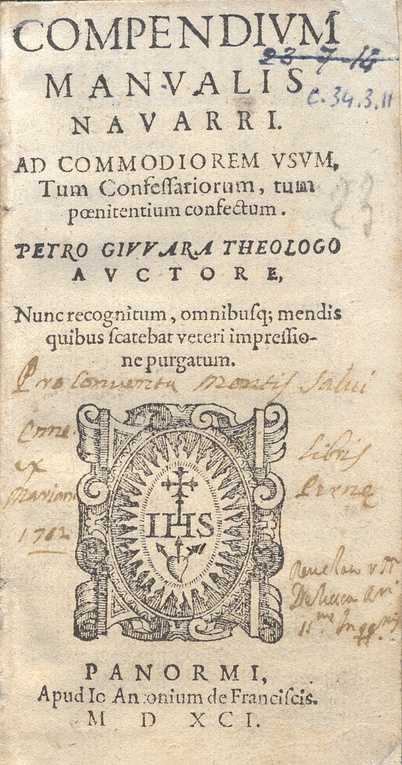 COMPENDIVM
23-7-16
MANVALIS
C.34.3.11
NAVARRI.
AD COMMODIOREM VSVM,
Tum Confessariorum, tum
pœnitentium confectum.
23
PETRO GIVVARA THEOLOGO
AVCTORE,
Nunc recognitum, omnibusq; mendis
quibus scatebat veteri impressio-
ne purgatum.
Pro Conventu Montis Salui
ex
libris
1702
IHS
PANORMI,
Apud Io Antonium de Franciscis.
M D XCI.